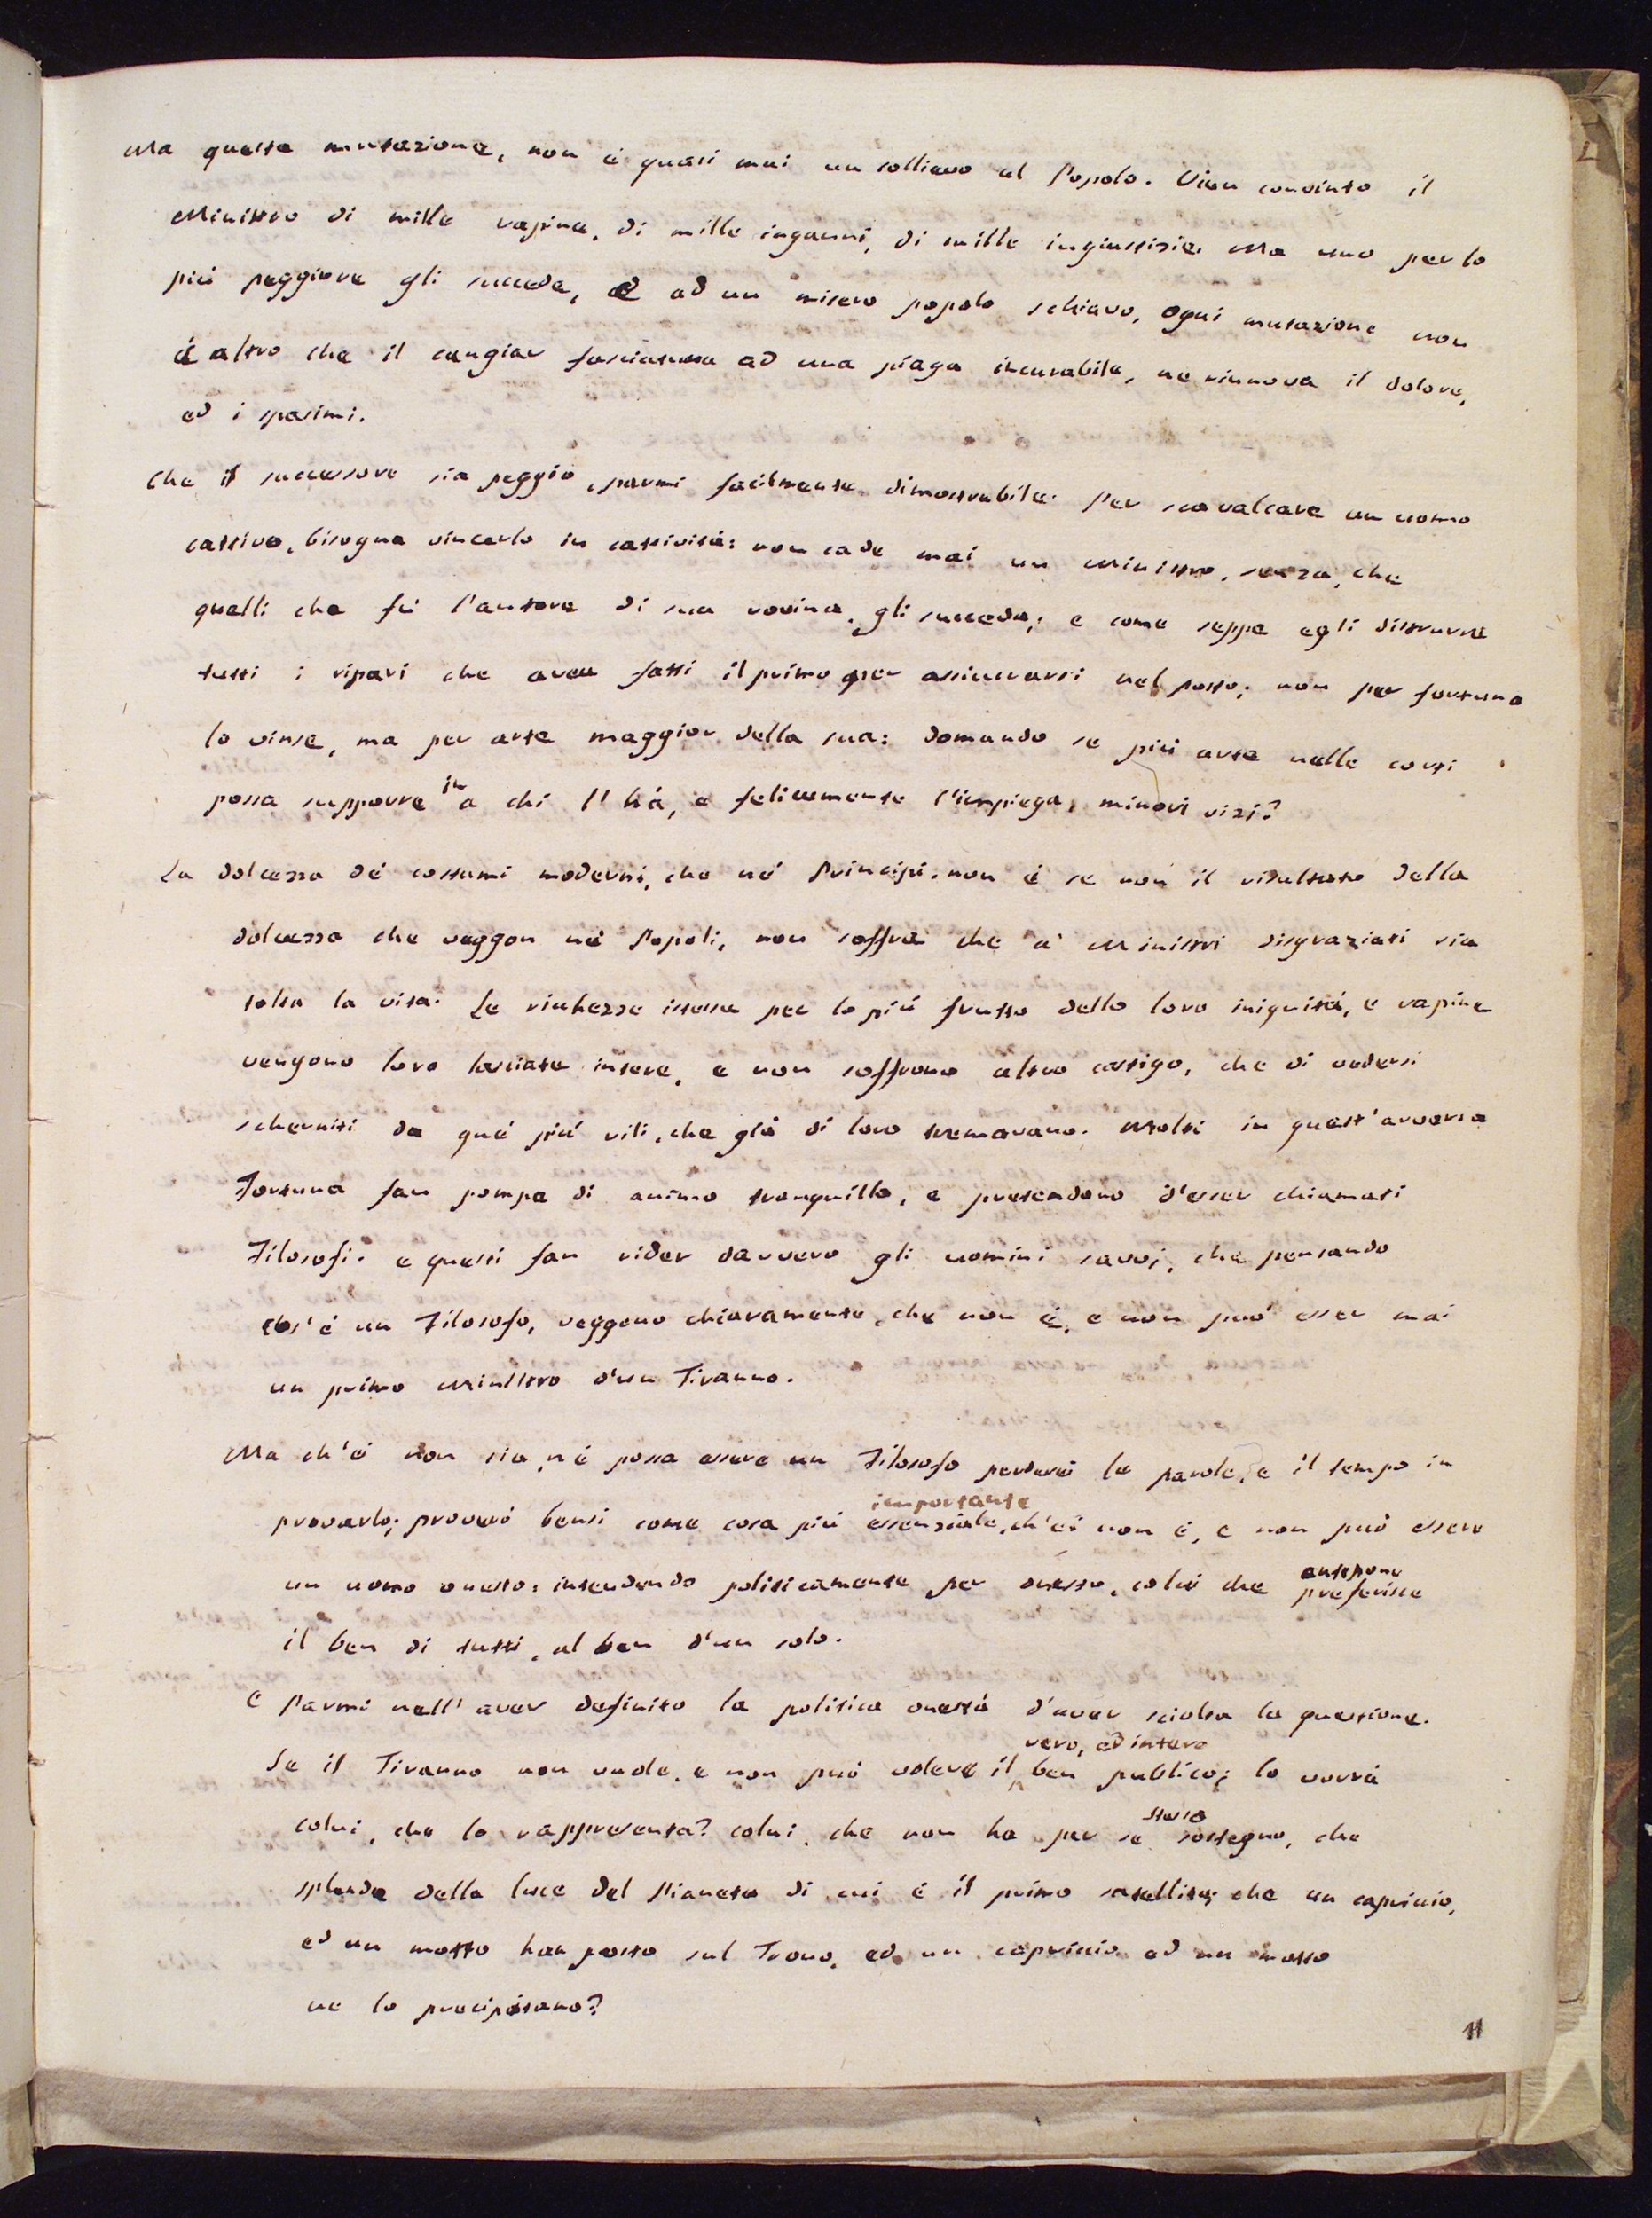 Ma questa mutazione, non è quasi mai un sollievo al Popolo. Vien convinto il
Ministro di mille rapine, di mille inganni, di mille ingiustizie. Ma uno per lo
più peggiore gli succede, e ad un misero popolo schiavo, ogni mutazione non
è altro che il cangiar fasciatura ad una piaga incurabile, ne rinnova il dolore,
ed i spasimi.
Che il successore sia peggio, parmi facilmente dimostrabile. Per scavalcare un uomo
cattivo, bisogna vincerlo in cattività: non cade mai un Ministro, senza, che
quelli che fù l'autore di sua rovina, gli succeda; e come seppe egli distrurre
tutti i ripari che avea fatti il primo per assicurarsi nel posto; non per fortuna
lo vinse, ma per arte maggior della sua: domando se più arte nelle corti
possa supporre in a chi l'hà, e felicemente l'impiega, minori vizi?
La dolcezza dé costumi moderni, che né Principi, non è se non il risultato della
dolcezza che veggon né Popoli, non soffre che a' Ministri disgraziati sia
tolta la vita. Le richezze istesse per lo più frutto dello loro iniquità, e rapine
vengono loro lasciate intere, e non soffrono altro castigo, che di vedersi
scherniti da qué più vili, che già di loro tremavano. Molti in quest'avversa
Fortuna fan pompa di animo tranquillo, e pretendono d'esser chiamati
Filosofi. e questi fan rider davvero gli uomini savvj, che pensando
cos'è un Filosofo, veggono chiaramente, che non è, e non può esser mai
un primo Ministro d'un Tiranno.
Ma ch'ei non sia, né possa essere un Filosofo perderei le parole, e il tempo in
provarlo; proverò bensi come cosa più essenziale, importante ch'ei non è, e non può essere
un uomo onesto: intendendo politicamente per onesto, colui che preferisce antepone
il ben di tutti, al ben d'un solo.
E Parmi nell'aver definito la politica onestà d'aver sciolta la questione.
Se il Tiranno non vuole, e non può volere il vero, ed intero ben publico; lo vorrà
colui, che lo rappresenta? colui, che non ha per se stesso sostegno, che
splende della luce del Pianeta di cui è il primo satellite; che un capriccio,
ed un motto han posto sul Trono, ed un capriccio ed un motto
ne lo precipitano?
11